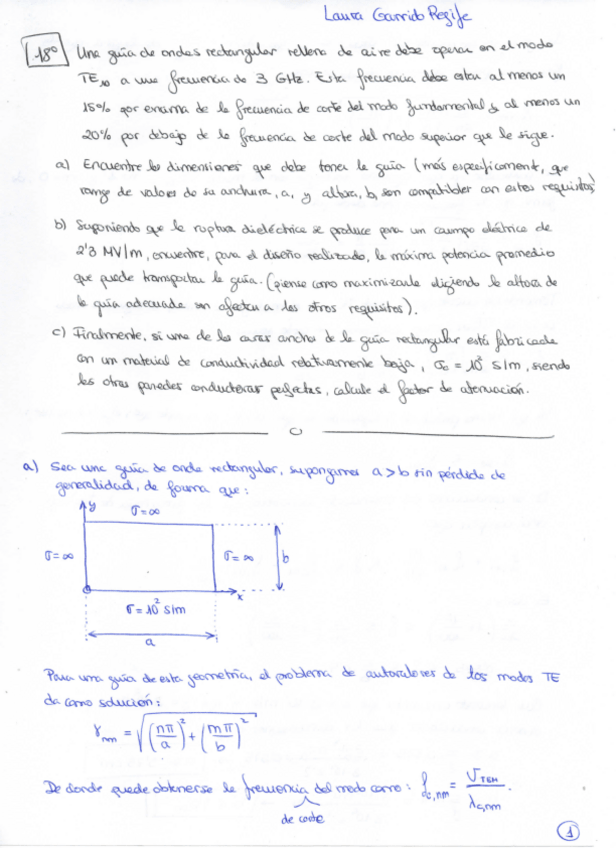 Laura Garrido Regife
18º Una guía de ondas rectangular rellena de aire debe operar en el modo
TE₁₀ a una frecuencia de 3 GHz. Esta frecuencia debe estar al menos un
15% por encima de la frecuencia de corte del modo fundamental y al menos un
20% por debajo de la frecuencia de corte del modo superior que le sigue.
a) Encuentre las dimensiones que debe tener la guía (más específicament, que
rango de valores de su anchura, a, y altura, b, son compatibles con estos requisitos)
b) Suponiendo que la ruptura dieléctrica se produce para un campo eléctrico de
2'3 MV/m, encuentre, para el diseño realizado, la máxima potencia promedio
que puede transportar la guía. (piense como maximizarla eligiendo la altura de
la guía adecuada sin afectar a los otros requisitos).
c) Finalmente, si una de las caras anchas de la guía rectangular está fabricada
con un material de conductividad relativamente baja, σc = 10² S/m, siendo
las otras paredes conductoras perfectas, calcule el factor de atenuación.
a) Sea una guía de onda rectangular, supongamos a > b sin pérdida de
generalidad, de forma que:
y
σ = ∞
σ = ∞
σ = ∞
b
x
σ = 10² S/m
a
Para una guía de esta geometría, el problema de autovalores de los modos TE
da como solución:
γnm = √((nπ/a)² + (mπ/b)²)
De donde puede obtenerse la frecuencia del modo como: fc,nm = VTEM / λc,nm.
de corte
1